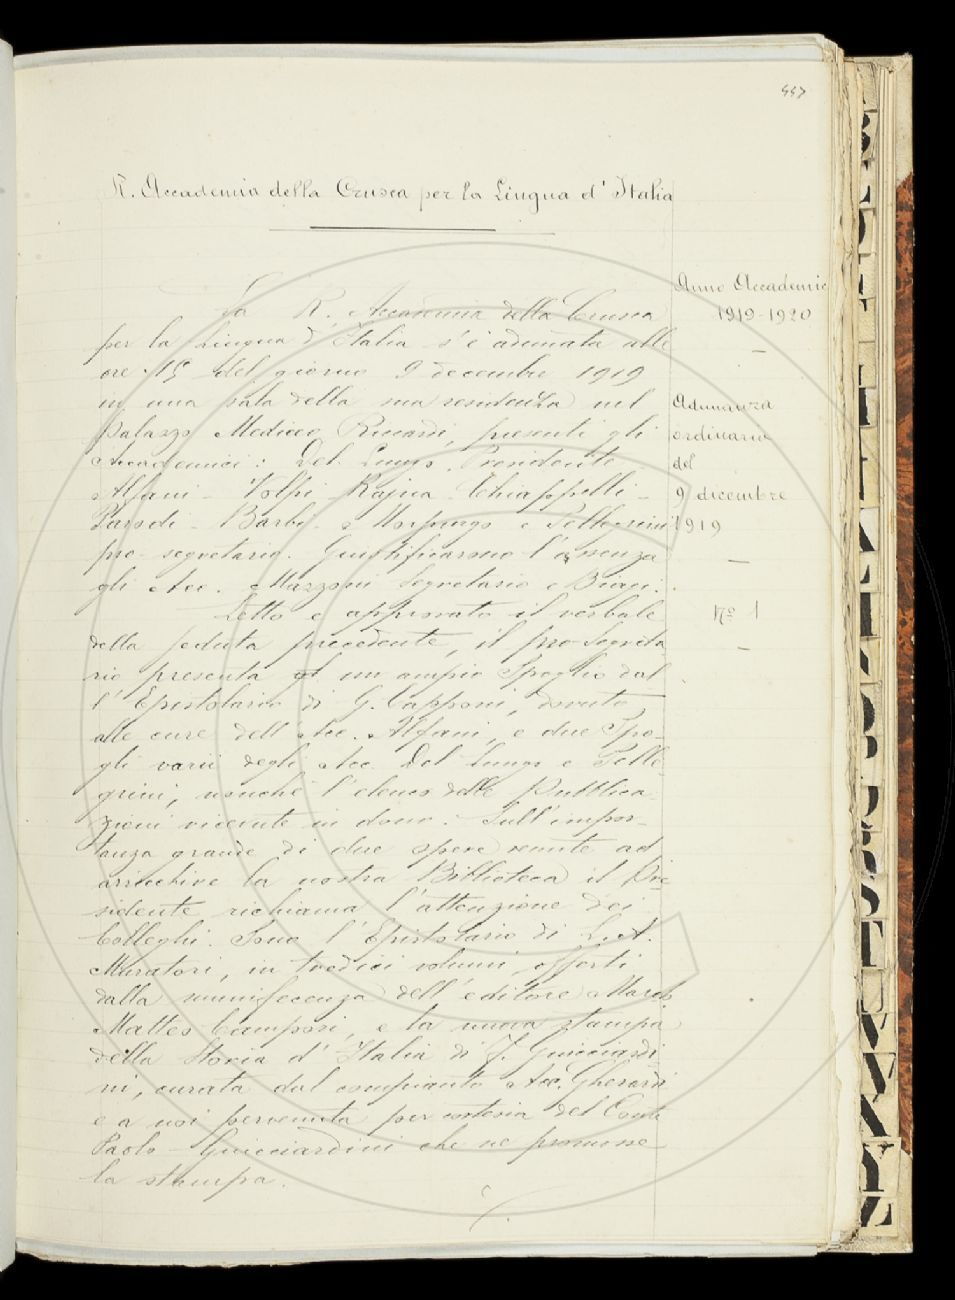 447
R. Accademia della Crusca per la Lingua d'Italia
Anno Accademic
1919-1920
Adunanza
ordinaria
del
9 dicembre
1919
Nº 1
La R. Accademia della Crusca
per la Lingua d'Italia s'è adunata alle
ore 15 del giorno 9 decembre 1919
in una sala della sua residenza nel
Palazzo Mediceo Riccardi, presenti gli
Accademici: Del Lungo Presidente
Alfani - Volpi - Rajna - Chiappelli -
Parodi - Barbi - Morpurgo e Pellegrini
pro-segretario. Giustificarono l'assenza
gli Acc. Mazzoni Segretario e Biagi.
Letto e approvato il verbale
della seduta precedente, il pro-Segreta
rio presenta un ampio Spoglio dal
l'Epistolario di G. Capponi, dovuto
alle cure dell'Acc. Alfani, e due Spo-
gli varii degli Acc. Del Lungo e Pelle-
grini, nonché l'elenco delle Pubblica-
zioni ricevute in dono. Sull'impor-
tanza grande di due opere venute ad
arricchire la nostra Biblioteca il Pre-
sidente richiama l'attenzione dei
Colleghi. Sono l'Epistolario di L. A.
Muratori, in tredici volumi, offerti
dalla munificenza dell'editore March.
Matteo Campori, e la nuova stampa
della Storia d'Italia di F. Guicciardi
ni, curata dal compianto Acc. Gherardi
e a noi pervenuta per cortesia del Conte
Paolo Guicciardini che ne promosse
la stampa.